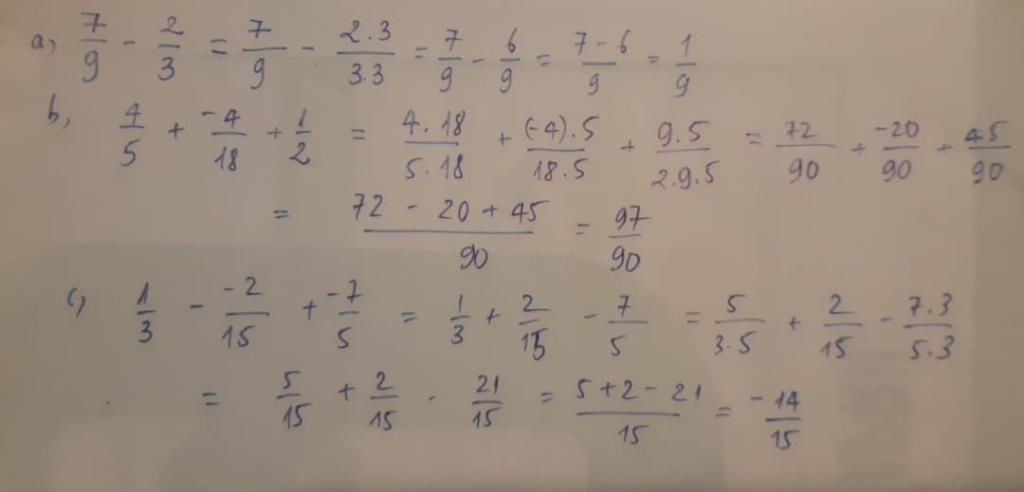 a, 7/9 - 2/3 = 7/9 - 2.3/3.3 = 7/9 - 6/9 = 7-6/9 = 1/9
b, 4/5 + -4/18 + 1/2 = 4.18/5.18 + (-4).5/18.5 + 9.5/2.9.5 = 72/90 + -20/90 + 45/90
= 72 - 20 + 45/90 = 97/90
c, 1/3 - -2/15 + -7/5 = 1/3 + 2/15 - 7/5 = 5/3.5 + 2/15 - 7.3/5.3
= 5/15 + 2/15 - 21/15 = 5+2-21/15 = -14/15